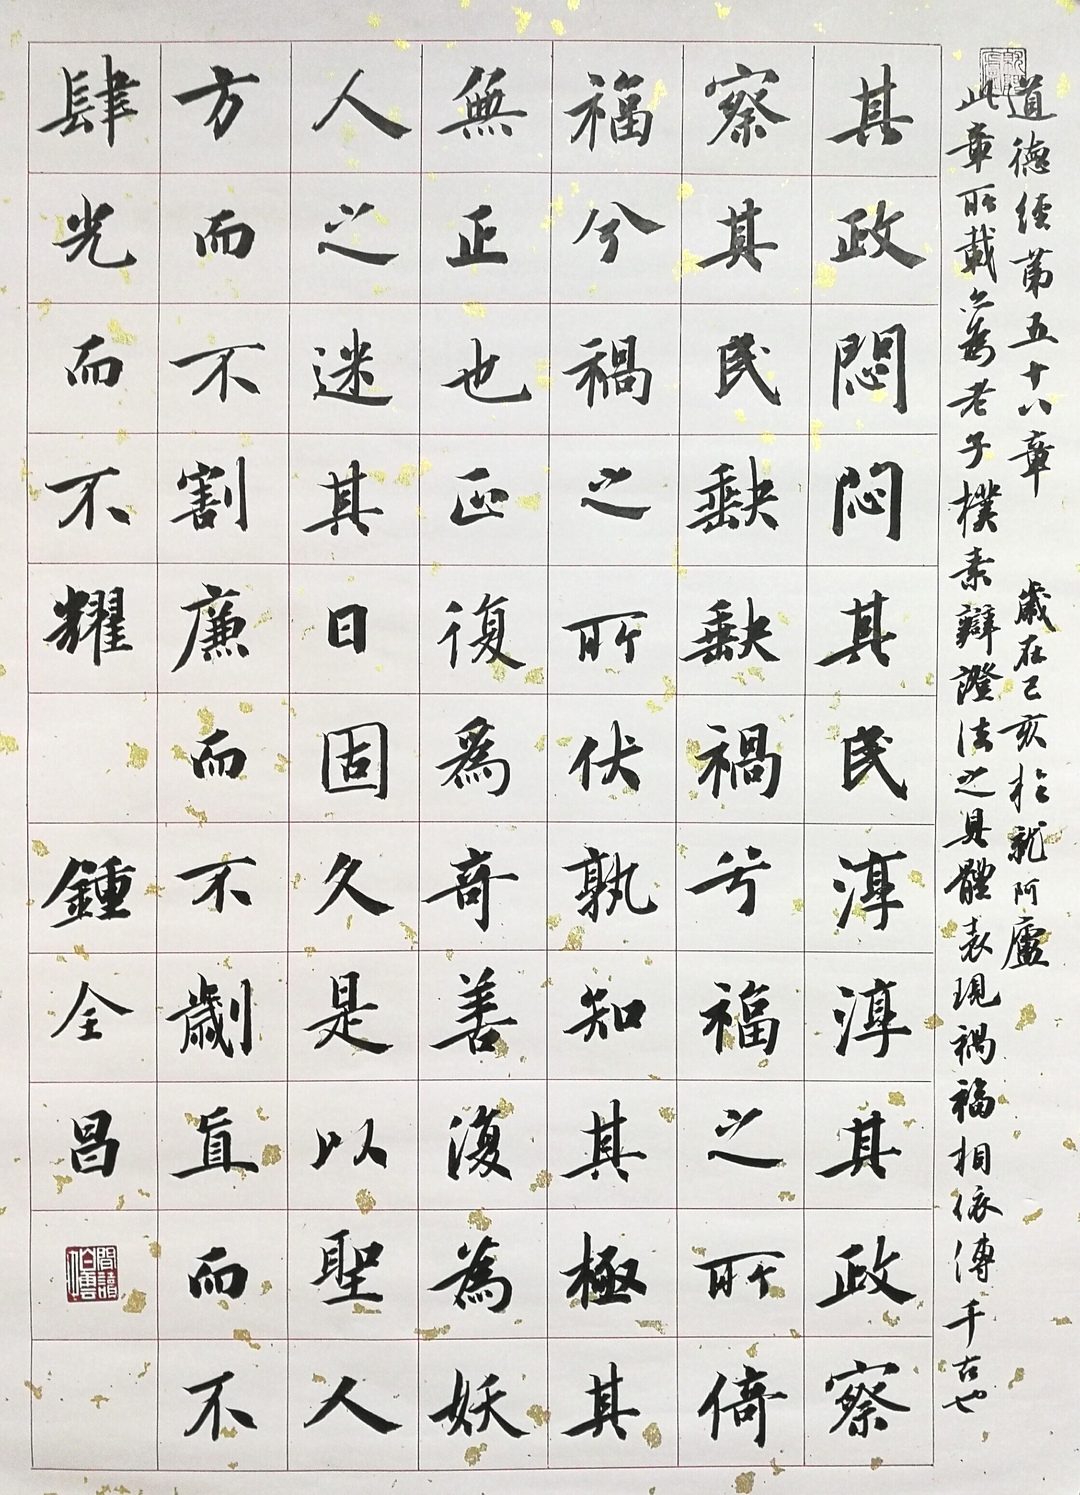 道德經第五十八章 歲在己亥於龍阿廬
此章所載亦為老子樸素辯證法之具體表現禍福相依傳千古也
其政悶悶其民淳淳其政察
察其民缺缺禍兮福之所倚
福兮禍之所伏孰知其極其
無正也正復為奇善復為妖
人之迷其日固久是以聖人
方而不割廉而不劌直而不
肆光而不耀 鍾全昌